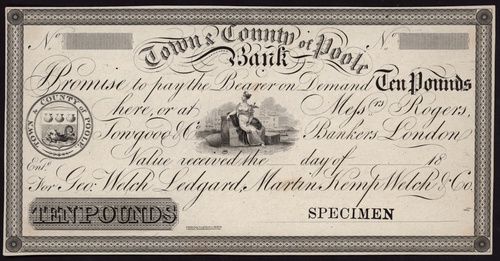 No No
Town & County of Poole
Bank
I Promise to pay the Bearer on Demand Ten Pounds
here, or at Messrs Rogers,
Towgood & Co. Bankers London
Value received the day of 18
TOWN & COUNTY OF POOLE
Entd.
For Geo: Welch Ledgard, Martin Kemp Welch & Co.
TEN POUNDS
SPECIMEN